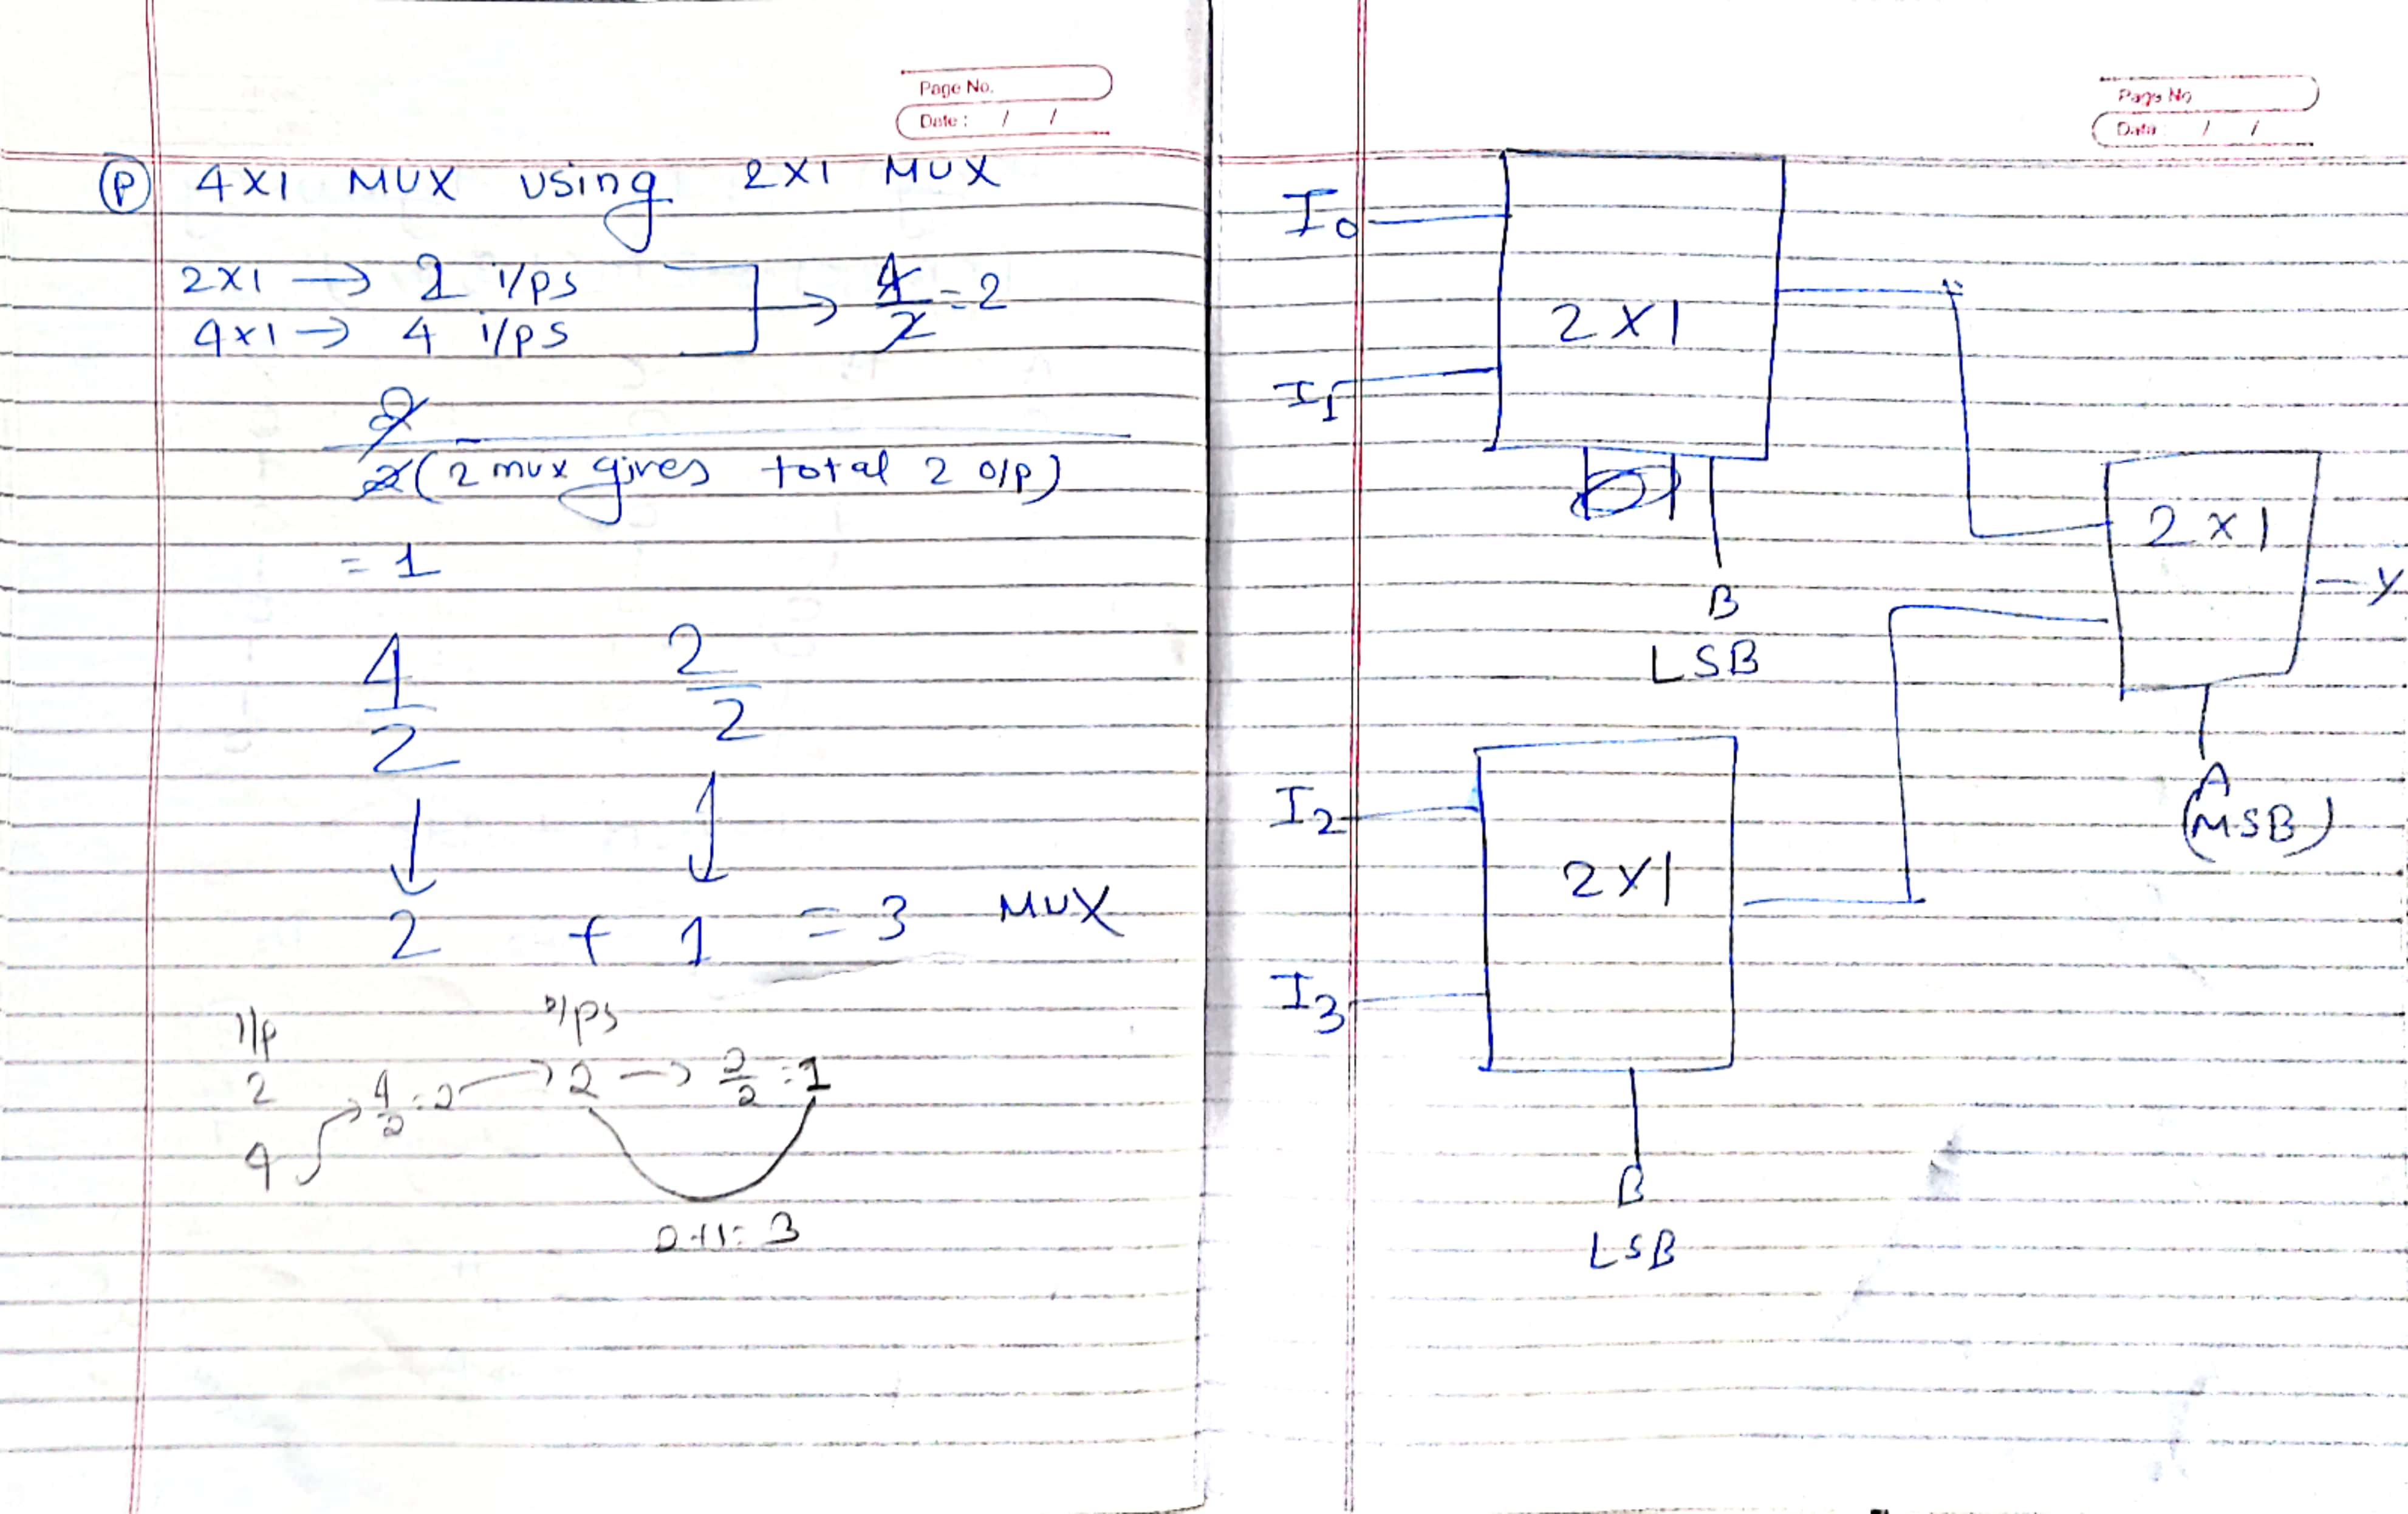 Page No.
Date : / /
(P) 4X1 MUX using 2X1 MUX
2X1 → 2 i/ps
4x1 → 4 i/ps
→ 4/2 = 2
2
2 (2 mux gives total 2 o/p)
= 1
4/2 2/2
2 + 1 = 3 MUX
i/p o/ps
2
4 → 4/2 = 2 → 2 → 2/2 = 1
2+1 = 3
Page No
Date / /
I0
2X1
I1
B
LSB
2x1
Y
A
(MSB)
I2
2X1
I3
B
LSB